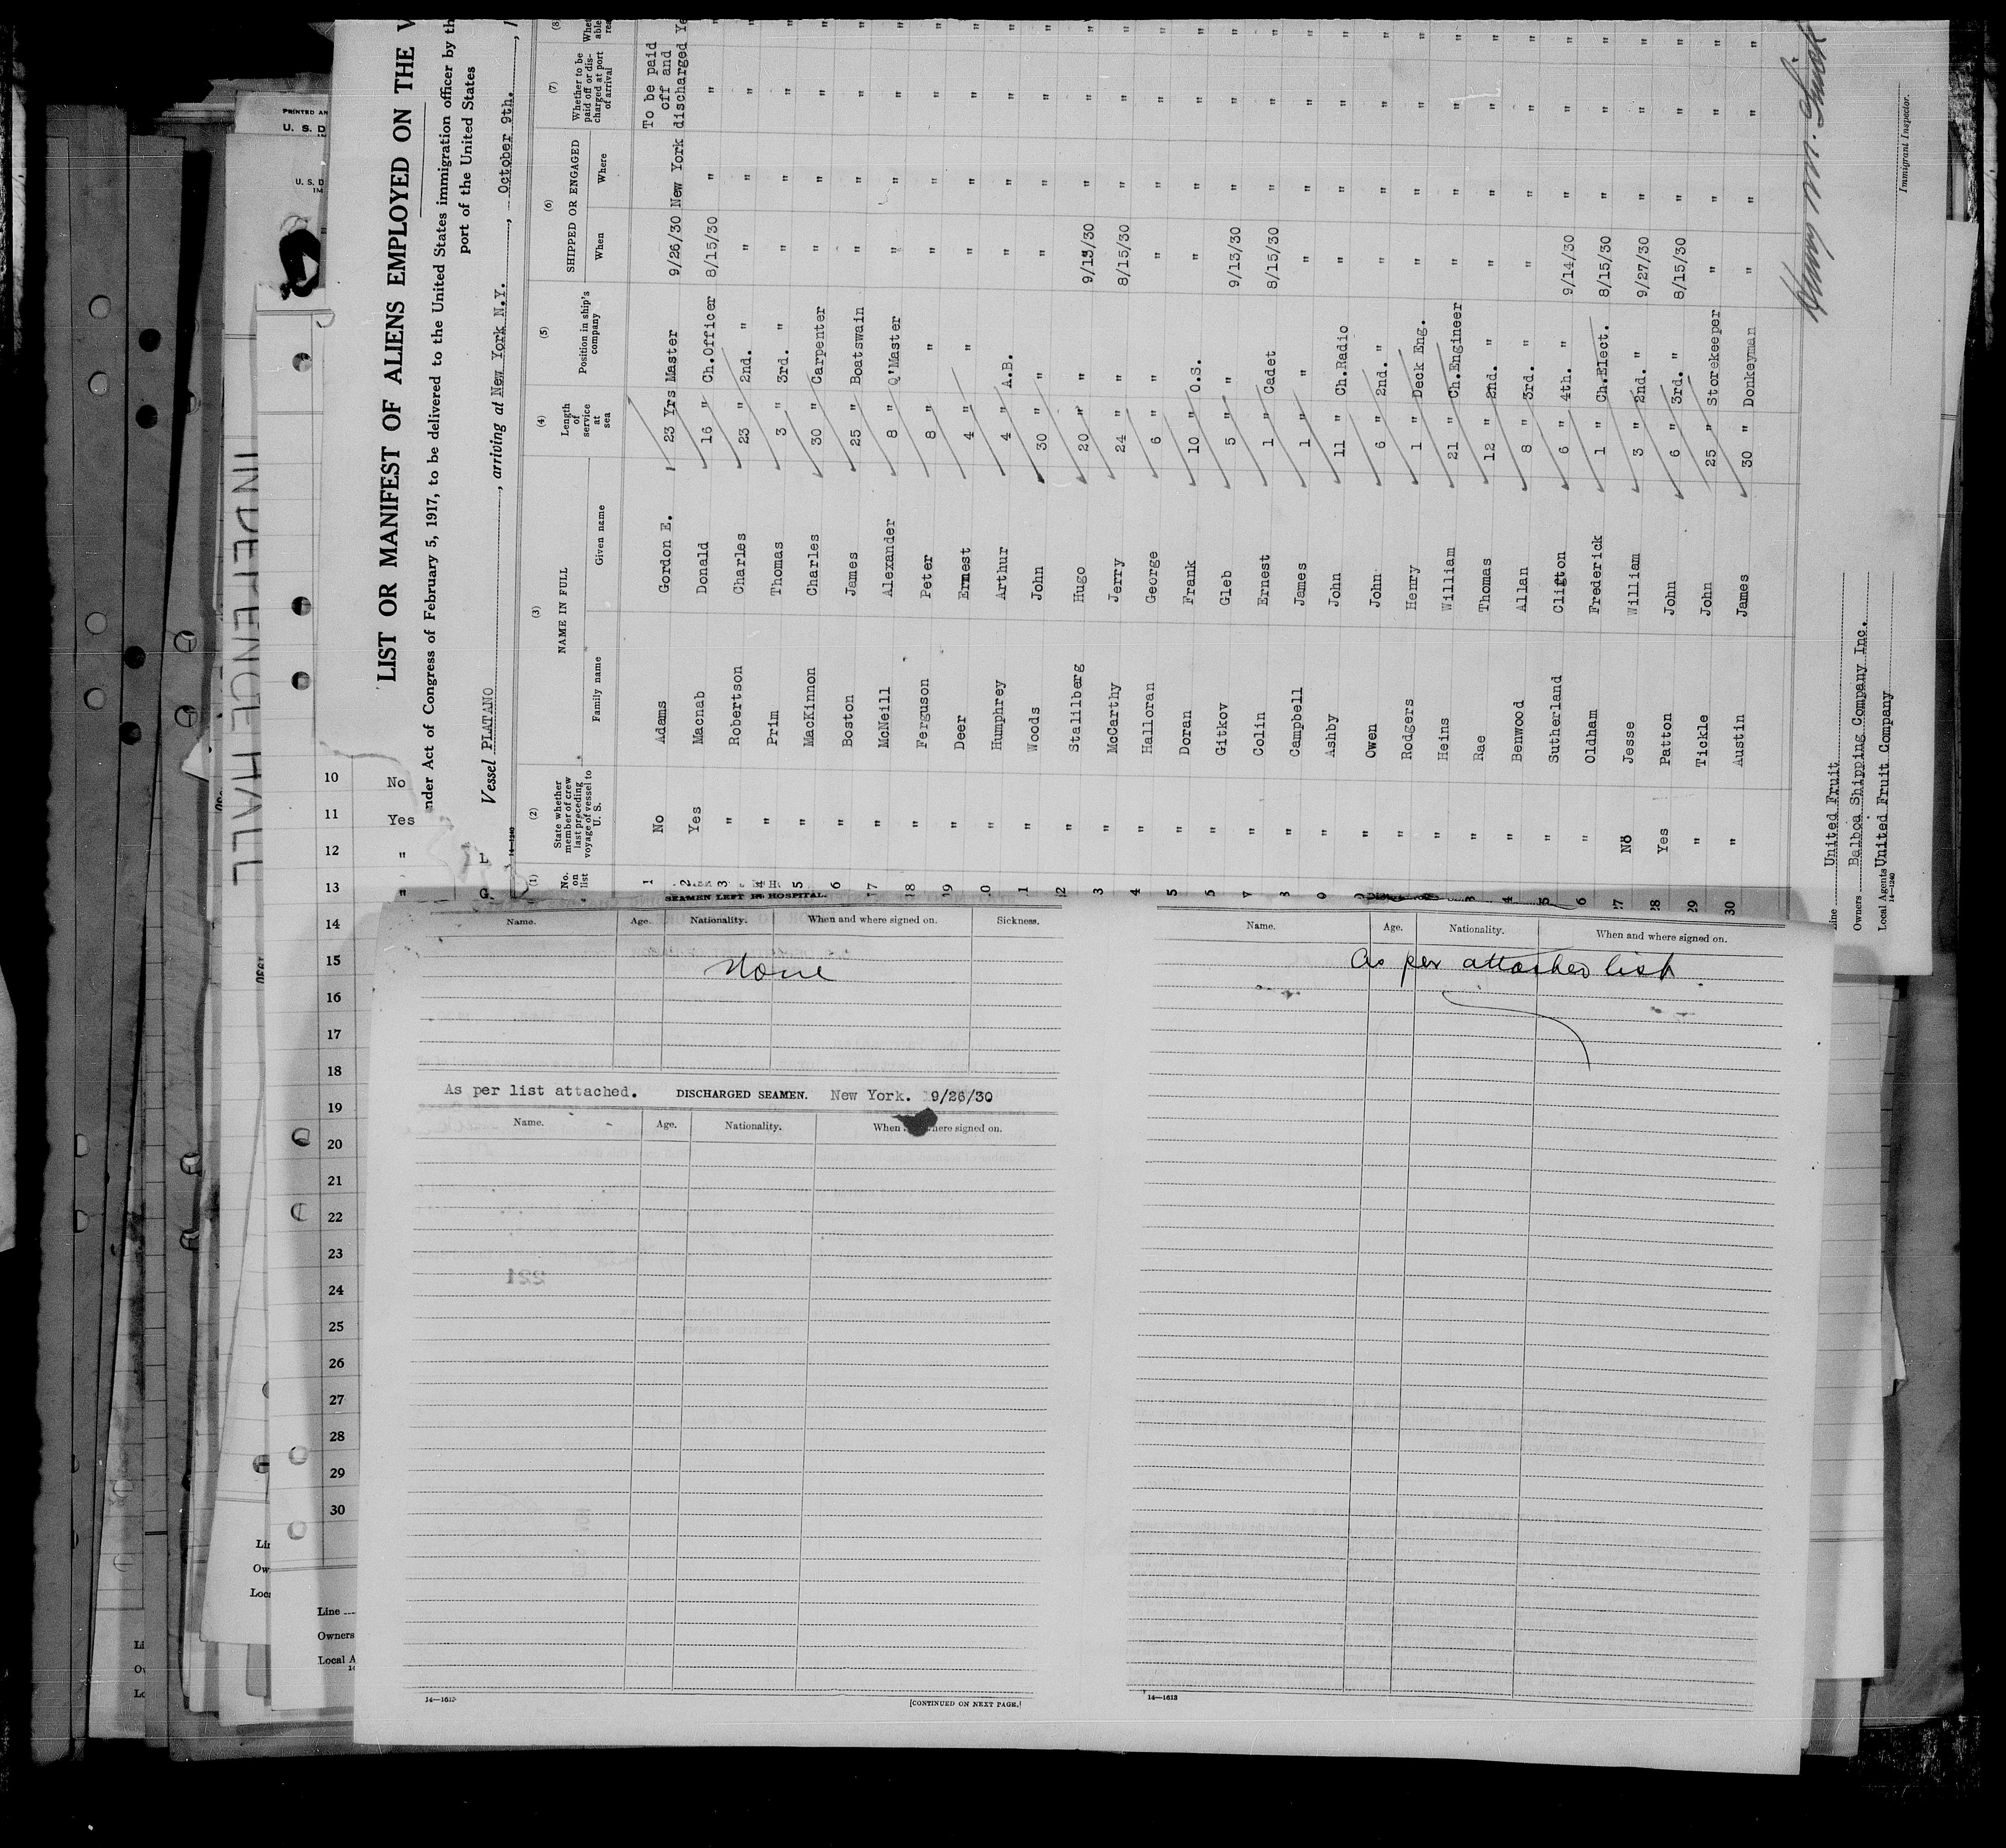 LIST OR MANIFEST OF ALIENS EMPLOYED ON THE V
nder Act of Congress of February 5, 1917, to be delivered to the United States immigration officer by th
port of the United States
Vessel PLATANO, arriving at New York N.Y., October 9th.
(1) (2) (3) (4) (5) (6) (7) (8)
No. on list | State whether member of crew last preceding voyage of vessel to U. S. | NAME IN FULL Family name | Given name | Length of service at sea | Position in ship's company | SHIPPED OR ENGAGED When | Where | Whether to be paid off or discharged at port of arrival
1 No Adams Gordon E. 23 Yrs Master 9/26/30 New York To be paid off and discharged Ye
2 Yes Macnab Donald 16 " Ch.Officer 8/15/30 " " "
3 " Robertson Charles 23 " 2nd. " " " " "
4 " Prim Thomas 3 " 3rd. " " " " "
5 " MacKinnon Charles 30 " Carpenter " " " "
6 " Boston James 25 " Boatswain " " " "
17 " McNeill Alexander 8 " Q'Master " " " "
18 " Ferguson Peter 8 " " " " " "
19 " Deer Ernest 4 " " " " " "
10 " Humphrey Arthur 4 " A.B. " " " "
1 " Woods John 30 " " " " " "
12 " Stalilberg Hugo 20 " " 9/13/30 " " "
3 " McCarthy Jerry 24 " " 8/15/30 " " "
4 " Halloran George 6 " " " " " "
5 " Doran Frank 10 " O.S. " " " "
5 " Gitkov Gleb 5 " " 9/13/30 " " "
7 " Colin Ernest 1 " Cadet 8/15/30 " " "
8 " Campbell James 1 " " " " " "
9 " Ashby John 11 " Ch.Radio " " " "
" Owen John 6 " 2nd. " " " " "
" Rodgers Henry 1 " Deck Eng. " " " "
" Heins William 21 " Ch.Engineer " " " "
3 " Rae Thomas 12 " 2nd. " " " " "
4 " Benwood Allan 8 " 3rd. " " " " "
5 " Sutherland Clifton 6 " 4th. " 9/14/30 " " "
6 " Oldham Frederick 1 " Ch.Elect. 8/15/30 " " "
27 No Jesse William 3 " 2nd. " 9/27/30 " " "
28 Yes Patton John 6 " 3rd. " 8/15/30 " " "
29 " Tickle John 25 " Storekeeper " " " "
30 " Austin James 30 " Donkeyman " " " "
Line United Fruit
Owners Balboa Shipping Company Inc.
Local Agents United Fruit Company
14—1240
Immigrant Inspector.
INDEPENDENCE HALL
PRINTED AN
U. S. D
U. S. D
IM
10 No
11 Yes
12 "
13 "
14
15
16
17
18
19
20
21
22
23
24
25
26
27
28
29
30
Line
Owners
Local A
SEAMEN LEFT IN HOSPITAL.
Name. Age. Nationality. When and where signed on. Sickness.
None
As per list attached. DISCHARGED SEAMEN. New York. 9/26/30
Name. Age. Nationality. When where signed on.
14—1613
[CONTINUED ON NEXT PAGE.]
Name. Age. Nationality. When and where signed on.
As per attached list
14—1613